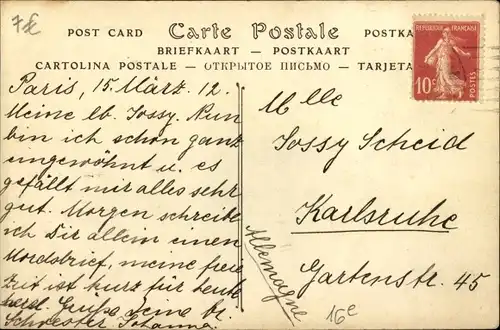 7€
POST CARD Carte Postale POSTKA
BRIEFKAART — POSTKAART
CARTOLINA POSTALE — ОТКРЫТОЕ ПИСЬМО — TARJETA
REPUBLIQUE FRANÇAISE
10c
POSTES
Paris, 15. März. 12.
Meine lb. Jossy. Nun
bin ich schon ganz
eingewöhnt u. es
gefällt mir alles sehr
gut. Morgen schreibe
ich Dir allein einen
Mordsbrief, meine freie
Zeit ist kurz für heute
herzl. Grüße deine
Schwester Johanna
Mlle
Jossy Scheid
Karlsruhe
Gartenstr. 45
Allemagne
16e